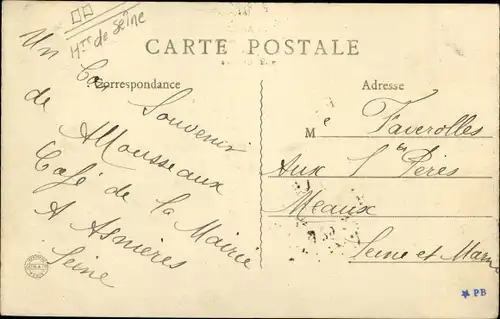 Hts de Seine
CARTE POSTALE
Correspondance
Un bon Souvenir
de A Mousseaux
Café de la Mairie
A Asnières
Seine
Adresse
Me Faverolles
Aux Sts Pères
Meaux
Seine et Marne
PB